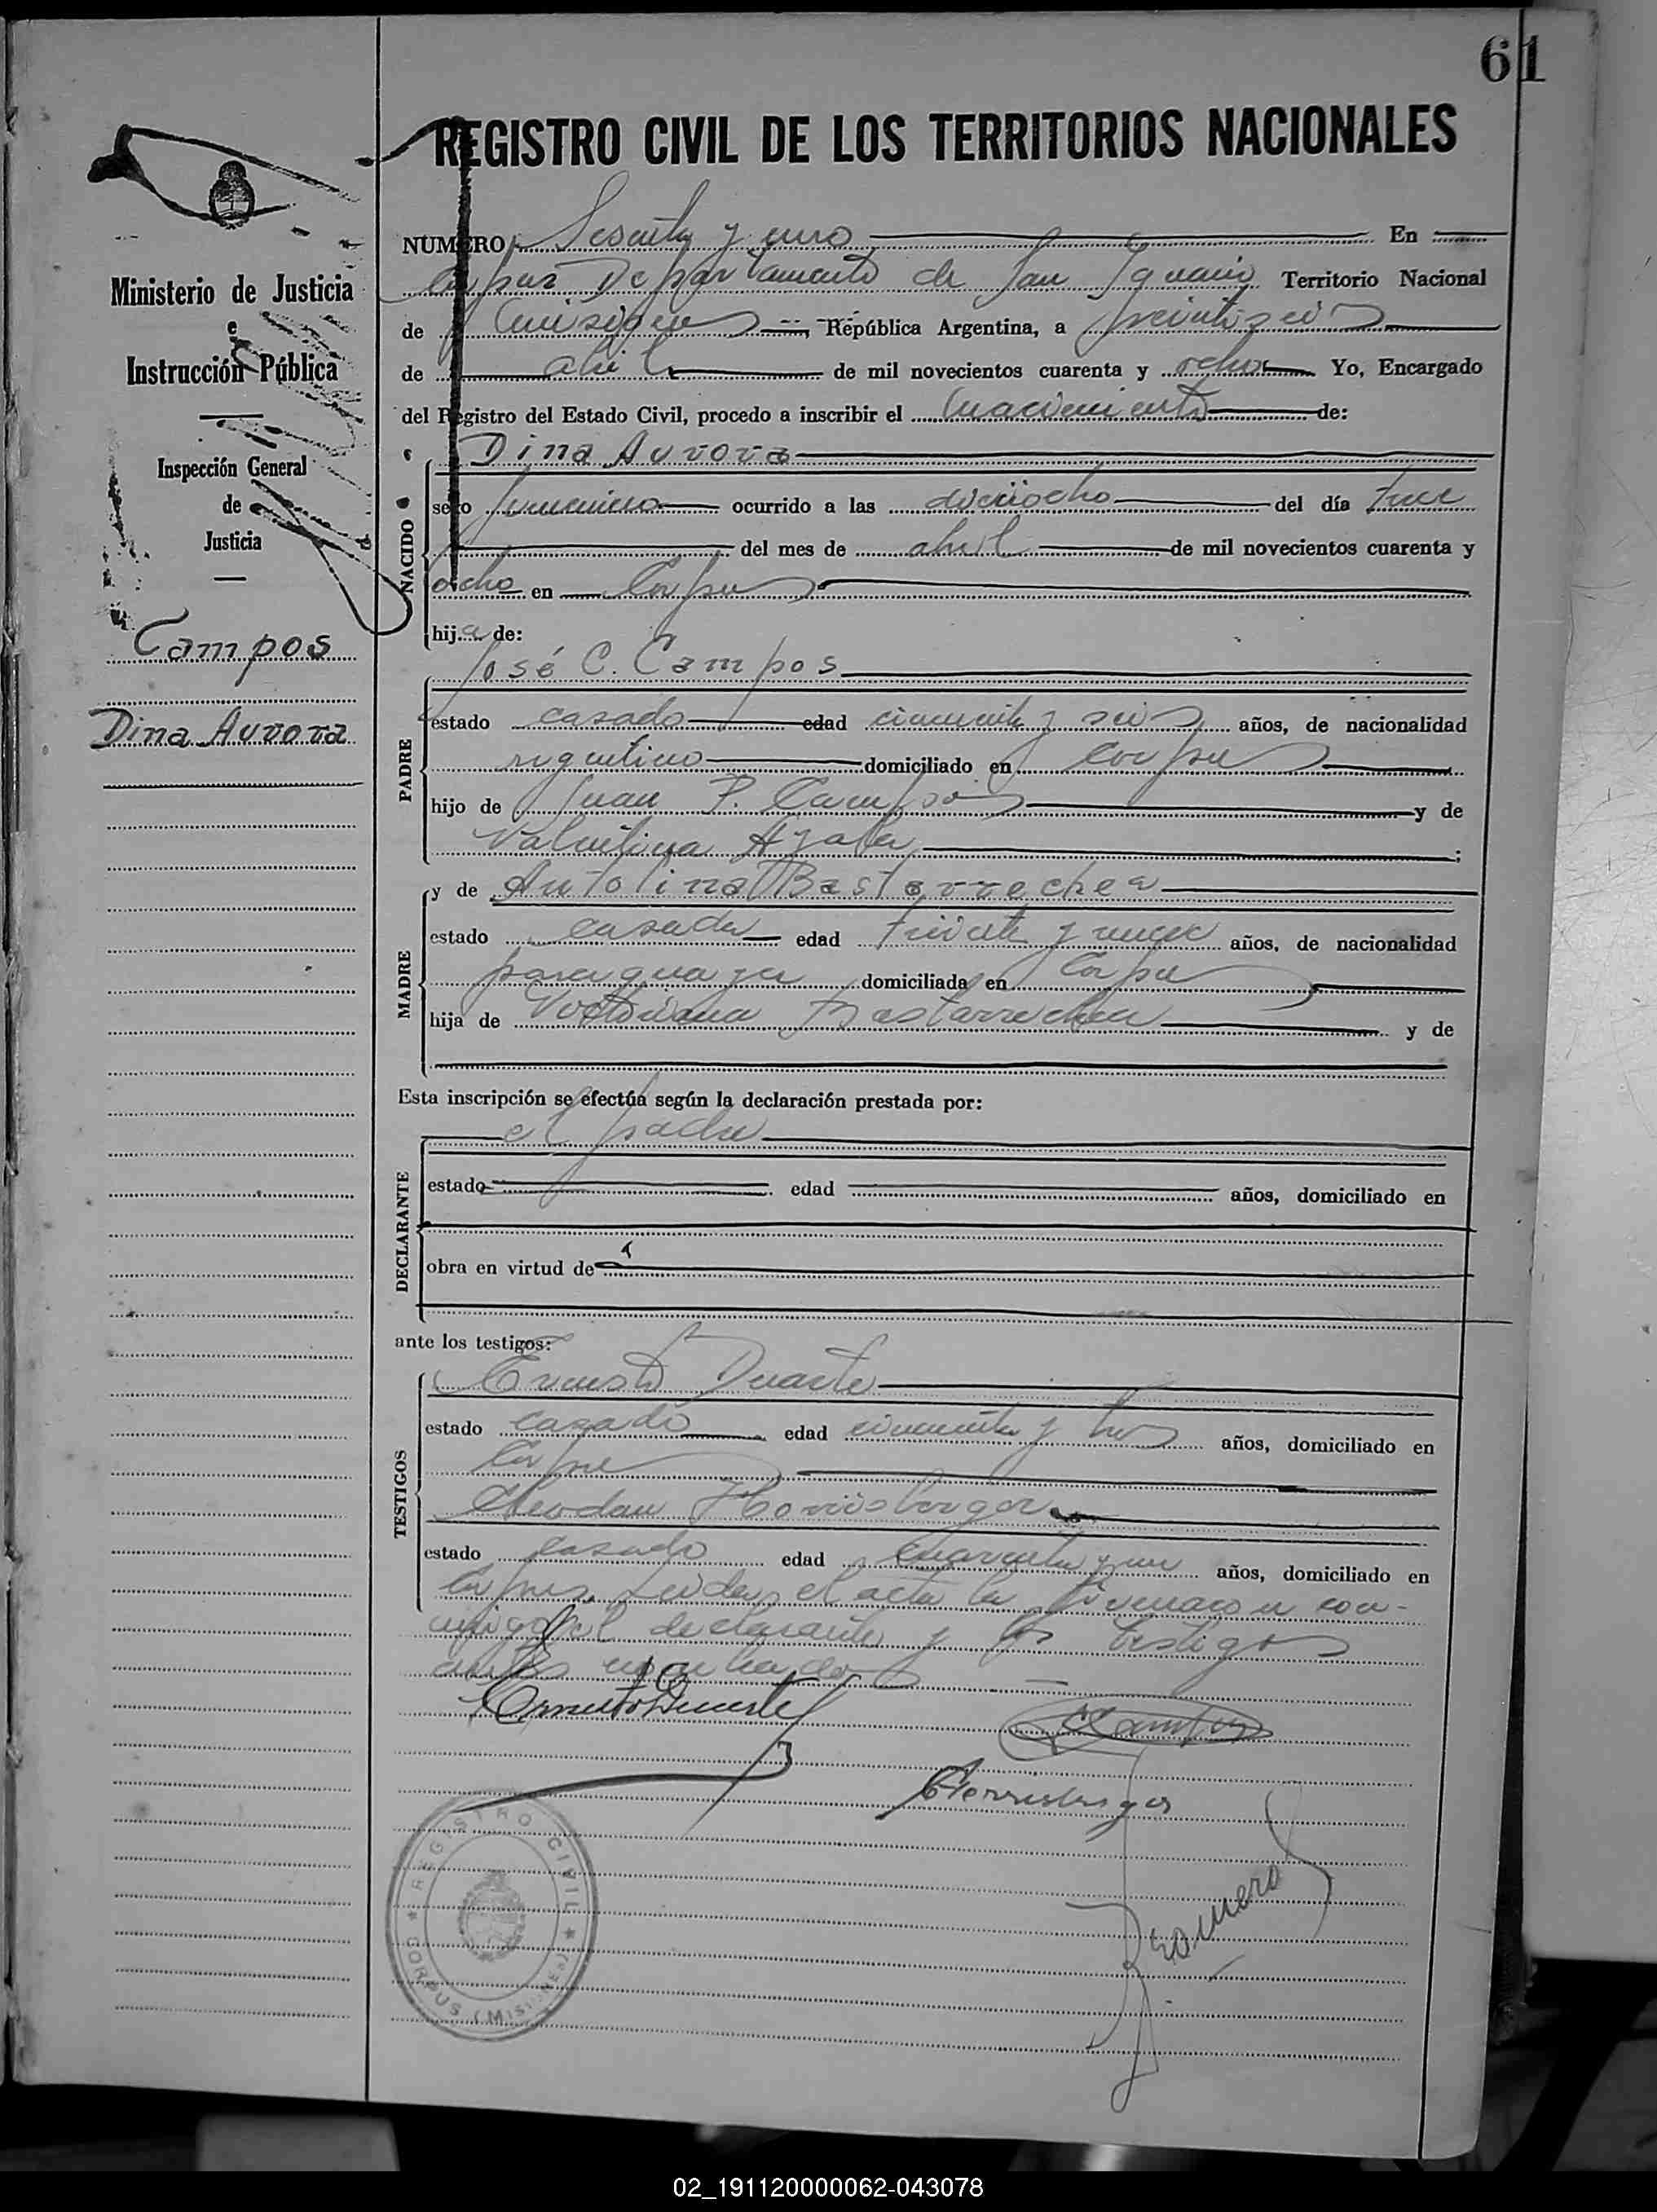 61
REGISTRO CIVIL DE LOS TERRITORIOS NACIONALES
Ministerio de Justicia
e
Instrucción Pública
Inspección General
de
Justicia
Campos
Dina Aurora
NUMERO Sesenta y uno En
Corpus Departamento de San Ignacio Territorio Nacional
de Misiones República Argentina, a veintiseis
de abril de mil novecientos cuarenta y ocho Yo, Encargado
del Registro del Estado Civil, procedo a inscribir el nacimiento de:
Dina Aurora
NACIDO
sexo femenino ocurrido a las dieciocho del día trece
del mes de abril de mil novecientos cuarenta y
ocho en Corpus
hija de:
José C. Campos
PADRE
estado casado edad cincuenta y seis años, de nacionalidad
argentino domiciliado en Corpus
hijo de Juan P. Campos y de
Valentina Ayala ;
y de Antolina Bastarrechea
MADRE
estado casada edad treinta y nueve años, de nacionalidad
paraguaya domiciliada en Corpus
hija de Bastarrechea y de
Esta inscripción se efectúa según la declaración prestada por:
el padre
DECLARANTE
estado edad años, domiciliado en
obra en virtud de
ante los testigos:
Ernesto Duarte
TESTIGOS
estado casado edad cincuenta y tres años, domiciliado en
Corpus
estado casado edad cuarenta y un años, domiciliado en
Corpus. Leida el acta la firmaron con-
migo el declarante y los testigos
antes nombrados
Ernesto Duarte
CCampos
Romero
REGISTRO CIVIL
CORPUS (MISIONES)
02_191120000062-043078